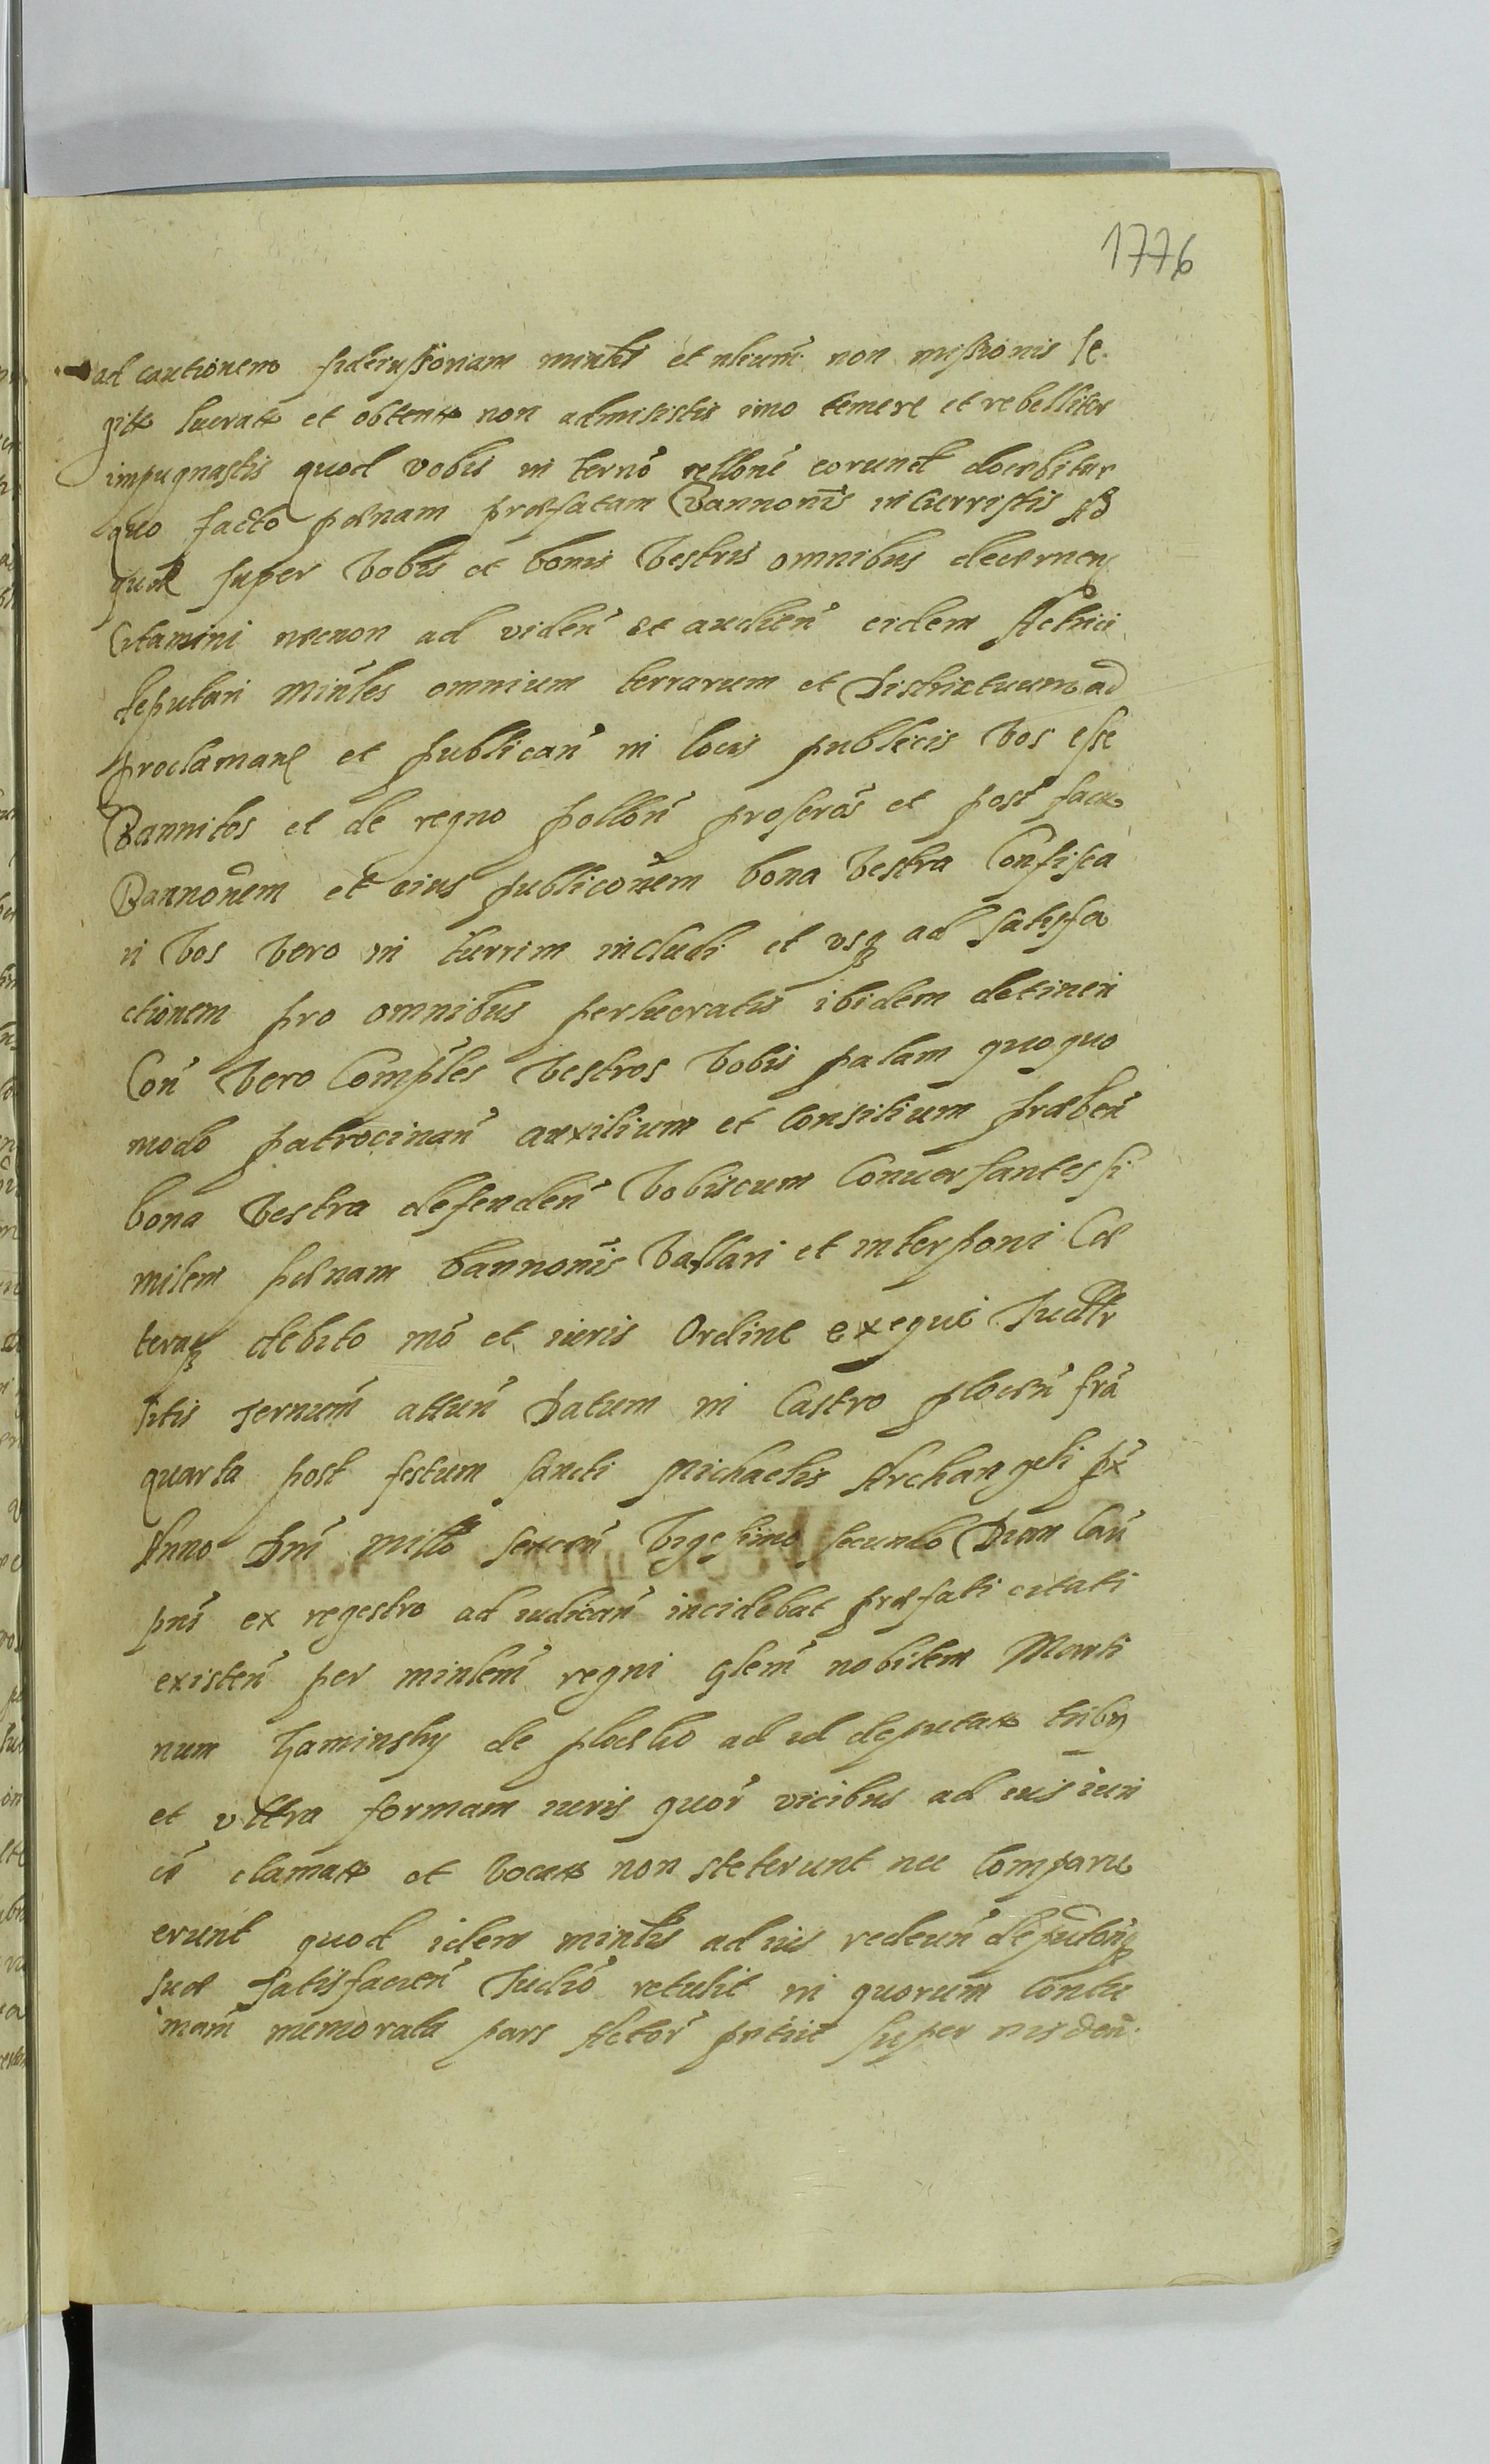 1776
ad cautionem fideiussoriam minlis et nlium non missionis le
gitt lucratæ et obtentæ non admisistis imo temere et rebelliter
impugnastis quod vobis in termo rellone eorund docebitur
quo facto pænam præfatam Bannonis incurristis Ad
quæ super vobis et bonis vestris omnibus decernen
Citamini necnon ad viden et audien eidem Actrici
deputari minles omnium terrarum et Districtuum ad
proclaman et publican in locis publicis vos esse
Bannitos et de regno pollon proscros et post fac
Bannonem et eius publiconem bona vestra Confisca
ri vos vero in turrim includi et usq ad satisfa
ctionem pro omnibus perlucratis ibidem detineri
Con vero ComplES vestros vobis palam quoquo
modo patrocinan auxilium et Consilium præben
bona vestra defenden vobiscum Conuersantes si
milem pænam bannonis vallari et interponi Cæ
teraq debito mo et iuris Ordine exequi Judltr
sitis ternum atten Datum in Castro plocen fra
quarta post festum sancti Michaelis Archangeli px
Anno Dni millo sexcen vigesimo secundo Dum Cau
pns ex regestro ad iudican incidebat præfati citati
existen per minlem regni glem nobilem Marti
num Kaminsky de plocko ad id deputat tribq
et ultra formam iuris quor vicibus ad ius iuri
ce clamat et vocat non steterunt nec Comparu
erunt quod idem minlis ad ius redeun deputonq
suæ satisfacien Judio retulit in quorum Contu
mam memorata pars Actor pntiit super eisdem